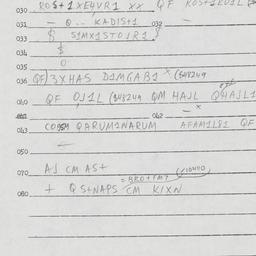 030 ROS+1XE4VR1 XX QF ROS+1R01L
031 — Q.. KADIS+1 032 —
033 $ S1MX1STOJR1 $
034 $
035 O
036 QF) 3XHAS D1MGAB1 x ($48249
040 QF OJ1L ($48249 QM HAJL Q4AJL1
042 — x
043 QARUM1NARUM AFAM1L81 QF
050
070 AJ CM AS+ (10440
= BRO+FM7
080 + QS+NAPS CM K1XN